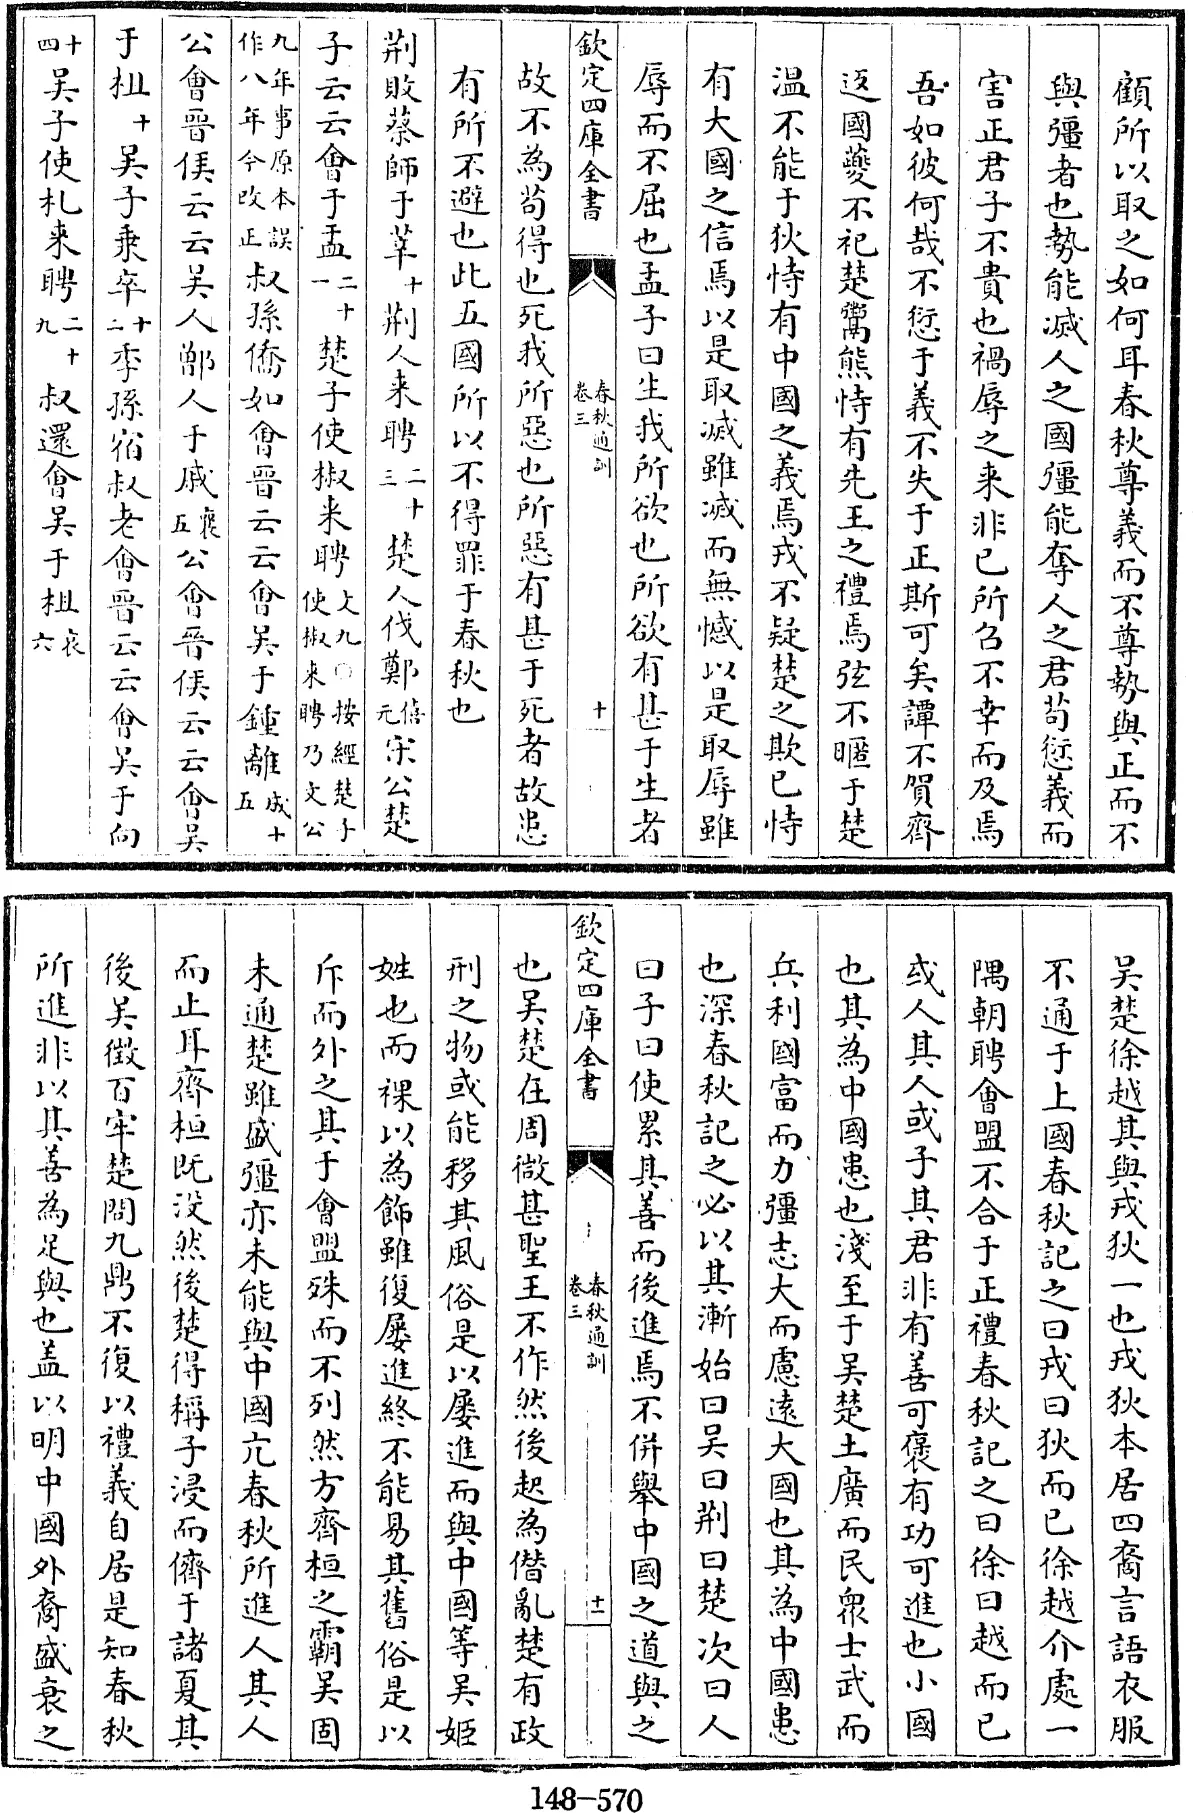 顧所以取之如何耳春秋尊義而不尊勢與正而不
與彊者也勢能滅人之國彊能奪人之君苟愆義而
害正君子不貴也禍辱之来非已所召不幸而及焉
吾如彼何哉不愆于義不失于正斯可矣譚不賀齊
逆國夔不祀楚鬻熊恃有先王之禮焉弦不暱于楚
温不能于狄恃有中國之義焉戎不疑楚之欺已恃
有大國之信焉以是取滅雖滅而無憾以是取辱雖
辱而不屈也孟子曰生我所欲也所欲有甚于生者
欽定四庫全書
春秋通訓
卷三
十
故不為苟得也死我所惡也所惡有甚于死者故患
有所不避也此五國所以不得罪于春秋也
荆敗蔡師于莘十荆人来聘二十三楚人伐鄭僖元宋公楚
子云云會于盂二十一楚子使椒来聘文九○按經楚子使椒来聘乃文公
九年事原本誤作八年今改正叔孫僑如會晉云云會吴于鍾離成十五
公會晉侯云云吴人鄫人于戚襄五公會晉侯云云會吴
于柤十吴子乘卒十二季孫宿叔老會晉云云會吴于向
十四吴子使札来聘二十九叔還會吴于柤哀六
吴楚徐越其與戎狄一也戎狄本居四裔言語衣服
不通于上國春秋記之曰戎曰狄而已徐越介處一
隅朝聘會盟不合于正禮春秋記之曰徐曰越而已
或人其人或子其君非有善可褒有功可進也小國
也其為中國患也淺至于吴楚土廣而民衆士武而
兵利國富而力彊志大而慮遠大國也其為中國患
也深春秋記之必以其漸始曰吴曰荆曰楚次曰人
曰子曰使累其善而後進焉不併舉中國之道與之
欽定四庫全書
春秋通訓
卷三
十一
也吴楚在周微甚聖王不作然後起為僭亂楚有政
刑之物或能移其風俗是以屢進而與中國等吴姬
姓也而裸以為飾雖復屢進終不能易其舊俗是以
斥而外之其于會盟殊而不列然方齊桓之霸吴固
未通楚雖盛彊亦未能與中國亢春秋所進人其人
而止耳齊桓既没然後楚得稱子浸而儕于諸夏其
後吴徵百牢楚問九鼎不復以禮義自居是知春秋
所進非以其善為足與也盖以明中國外裔盛衰之
148-570